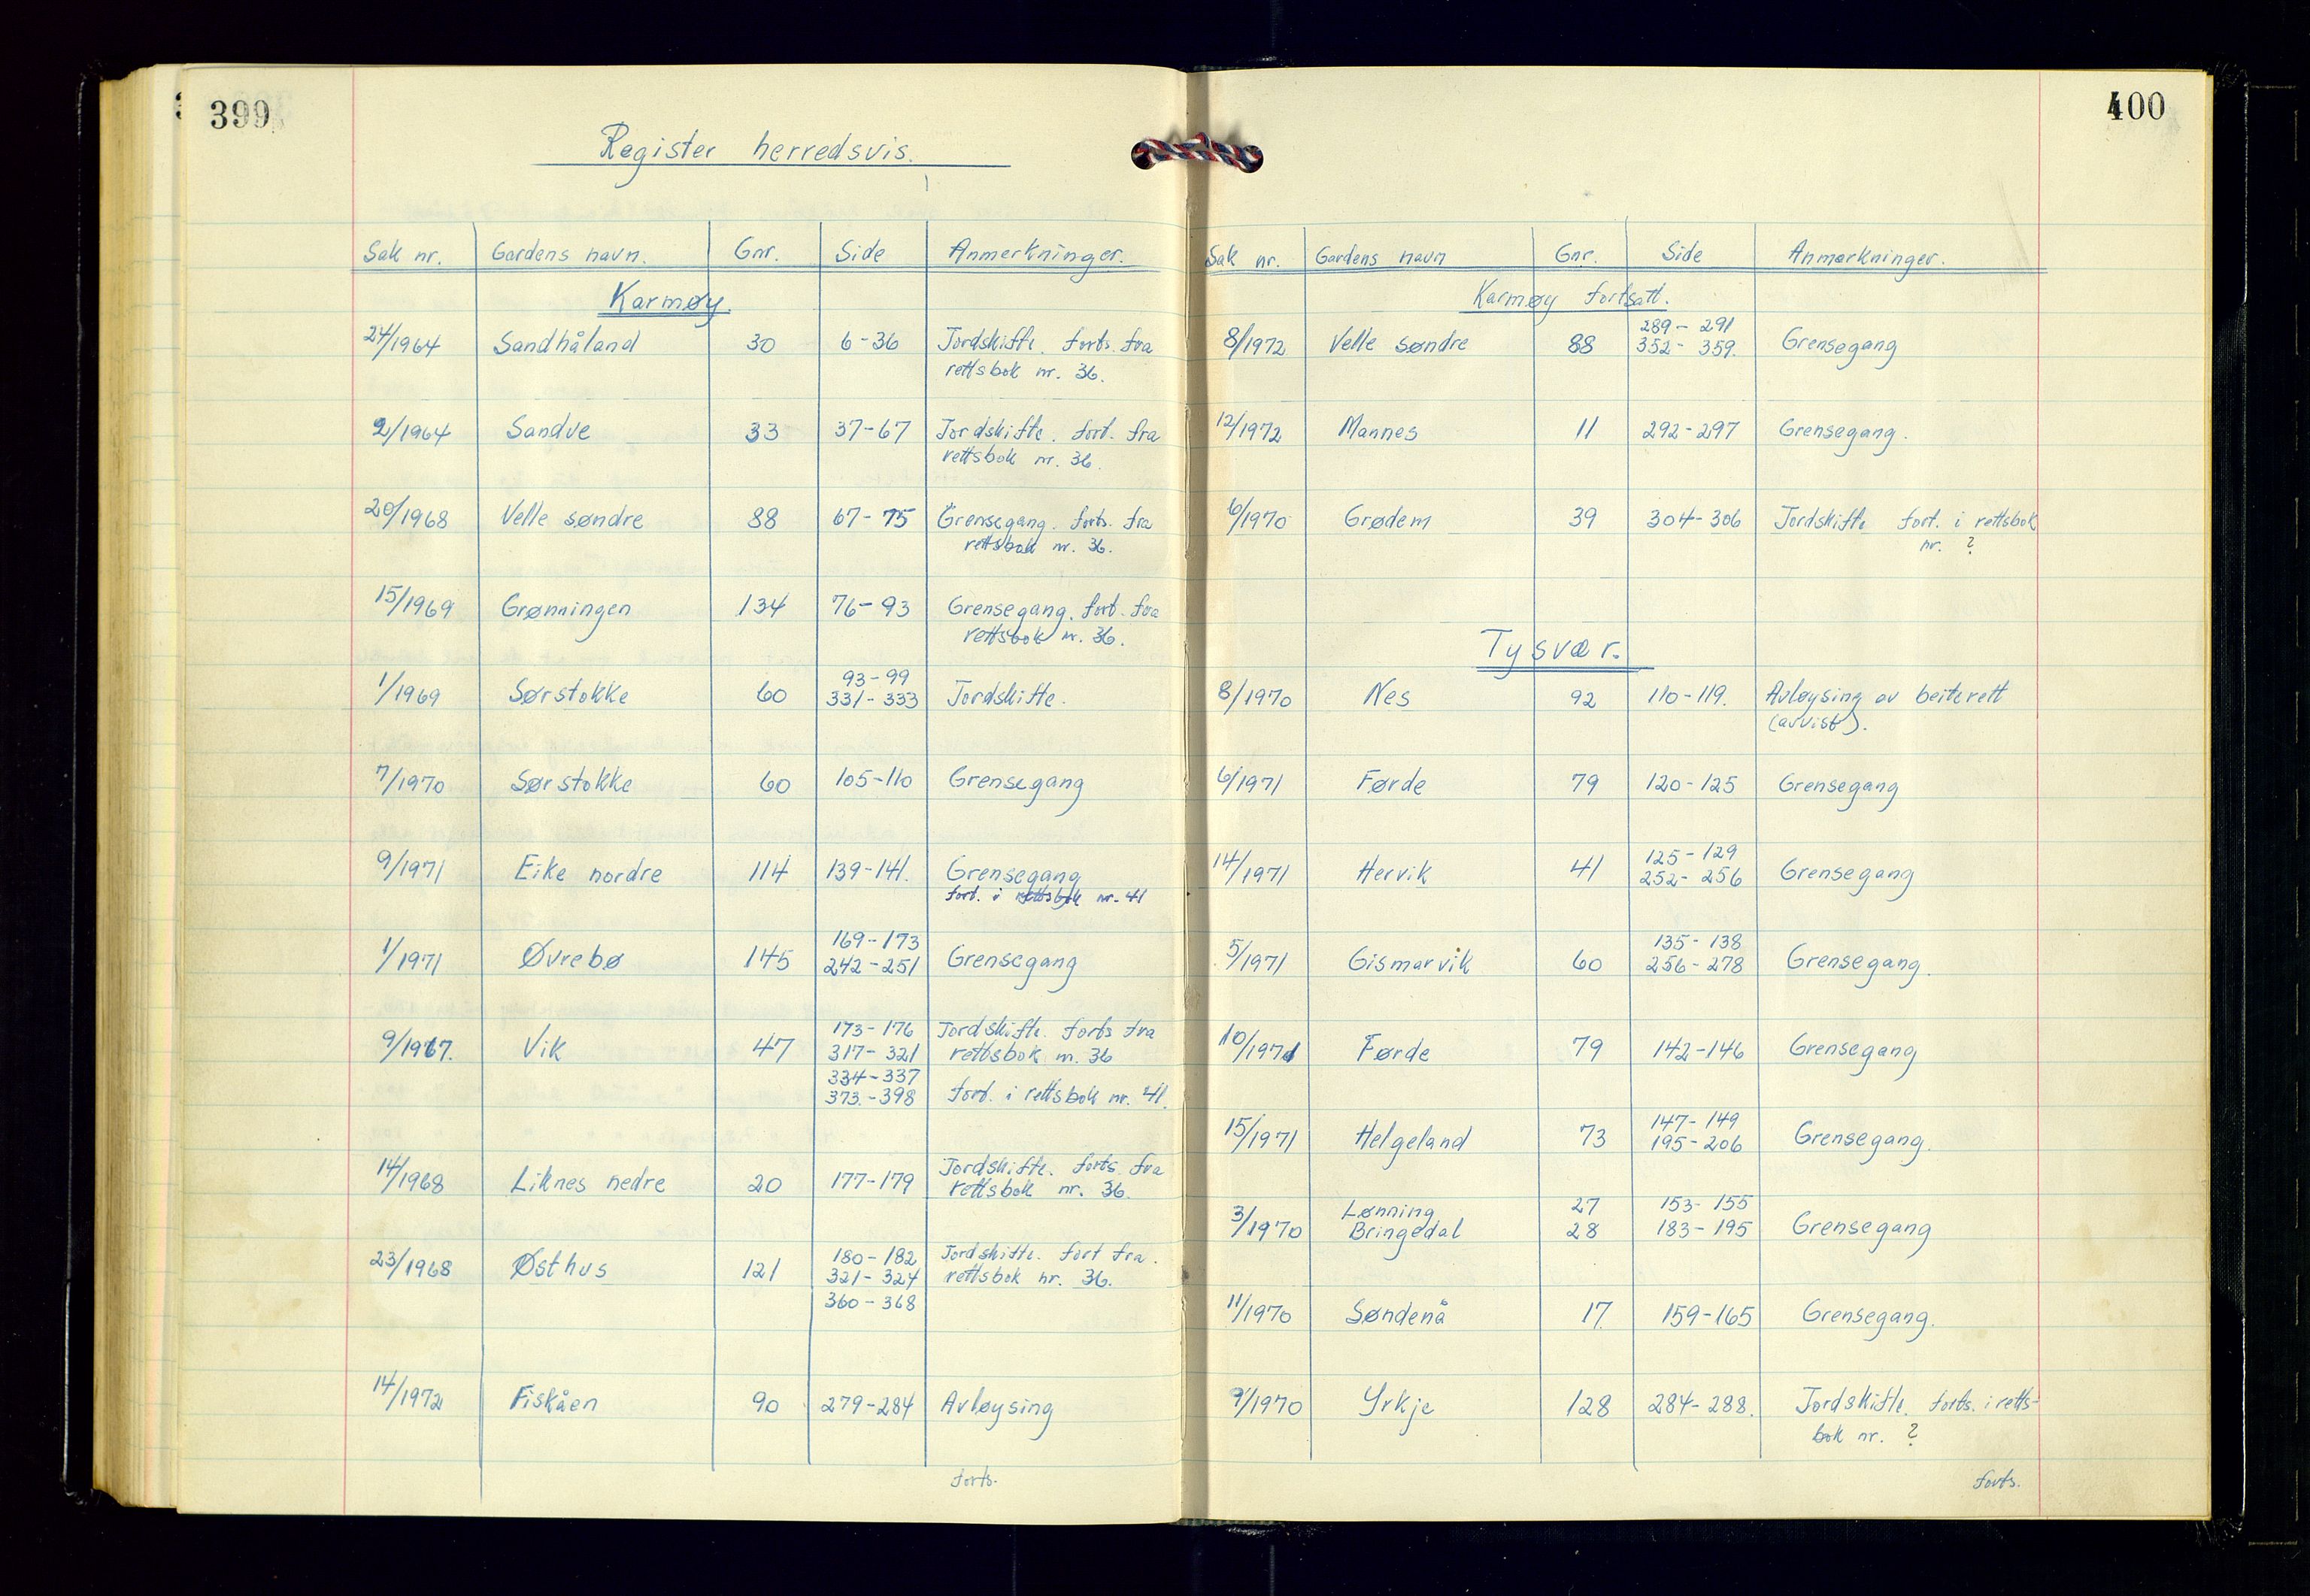 399
Register herredsvis.
Sak nr. Gardens navn. Gnr. Side Anmerkninger.
Karmøy.
24/1964 Sandhåland 30 6-36 Jordskifte. forts. fra
rettsbok nr. 36.
2/1964 Sandve 33 37-67 Jordskifte. fort. fra
rettsbok nr. 36.
20/1968 Velle søndre 88 67-75 Grensegang. forts. fra
rettsbok nr. 36.
15/1969 Grønningen 134 76-93 Grensegang. fort. fra
rettsbok nr. 36.
93-99
1/1969 Sørstokke 60 331-333 Jordskifte.
7/1970 Sørstokke 60 105-110 Grensegang
9/1971 Eike nordre 114 139-141. Grensegang
fort. i rettsbok nr. 41
169-173
1/1971 Øvrebø 145 242-251 Grensegang
173-176 Jordskifte. forts fra
9/1967. Vik 47 317-321 rettsbok nr. 36
334-337
373.-398 fort. i rettsbok nr. 41.
14/1968 Liknes nedre 20 177-179 Jordskifte. forts. fra
rettsbok nr. 36.
180-182 Jordskifte. fort fra.
23/1968 Østhus 121 321-324 rettsbok nr. 36.
360-368
14/1972 Fiskåen 90 279-284 Avløysing
forts.
400
Sak nr. Gardens navn Gnr. Side Anmerkninger.
Karmøy fortsatt.
289-291
8/1972 Velle søndre 88 352-359. Grensegang
12/1972 Mannes 11 292-297 Grensegang.
6/1970 Grødem 39 304-306 Jordskifte fort. i rettsbok
nr. ?
Tysvær.
8/1970 Nes 92 110-119. Avløysing av beiterett
(avvist).
6/1971 Førde 79 120-125 Grensegang
125-129
14/1971 Hervik 41 252-256 Grensegang
135-138
5/1971 Gismarvik 60 256-278 Grensegang.
10/1971 Førde 79 142-146 Grensegang
147-149
15/1971 Helgeland 73 195-206 Grensegang.
Lønning 27 153-155
3/1970 Bringedal 28 183-195 Grensegang
11/1970 Søndenå 17. 159-165 Grensegang.
9/1970 Yrkje 128 284-288. Jordskifte. forts. i retts-
bok nr. ?
forts.